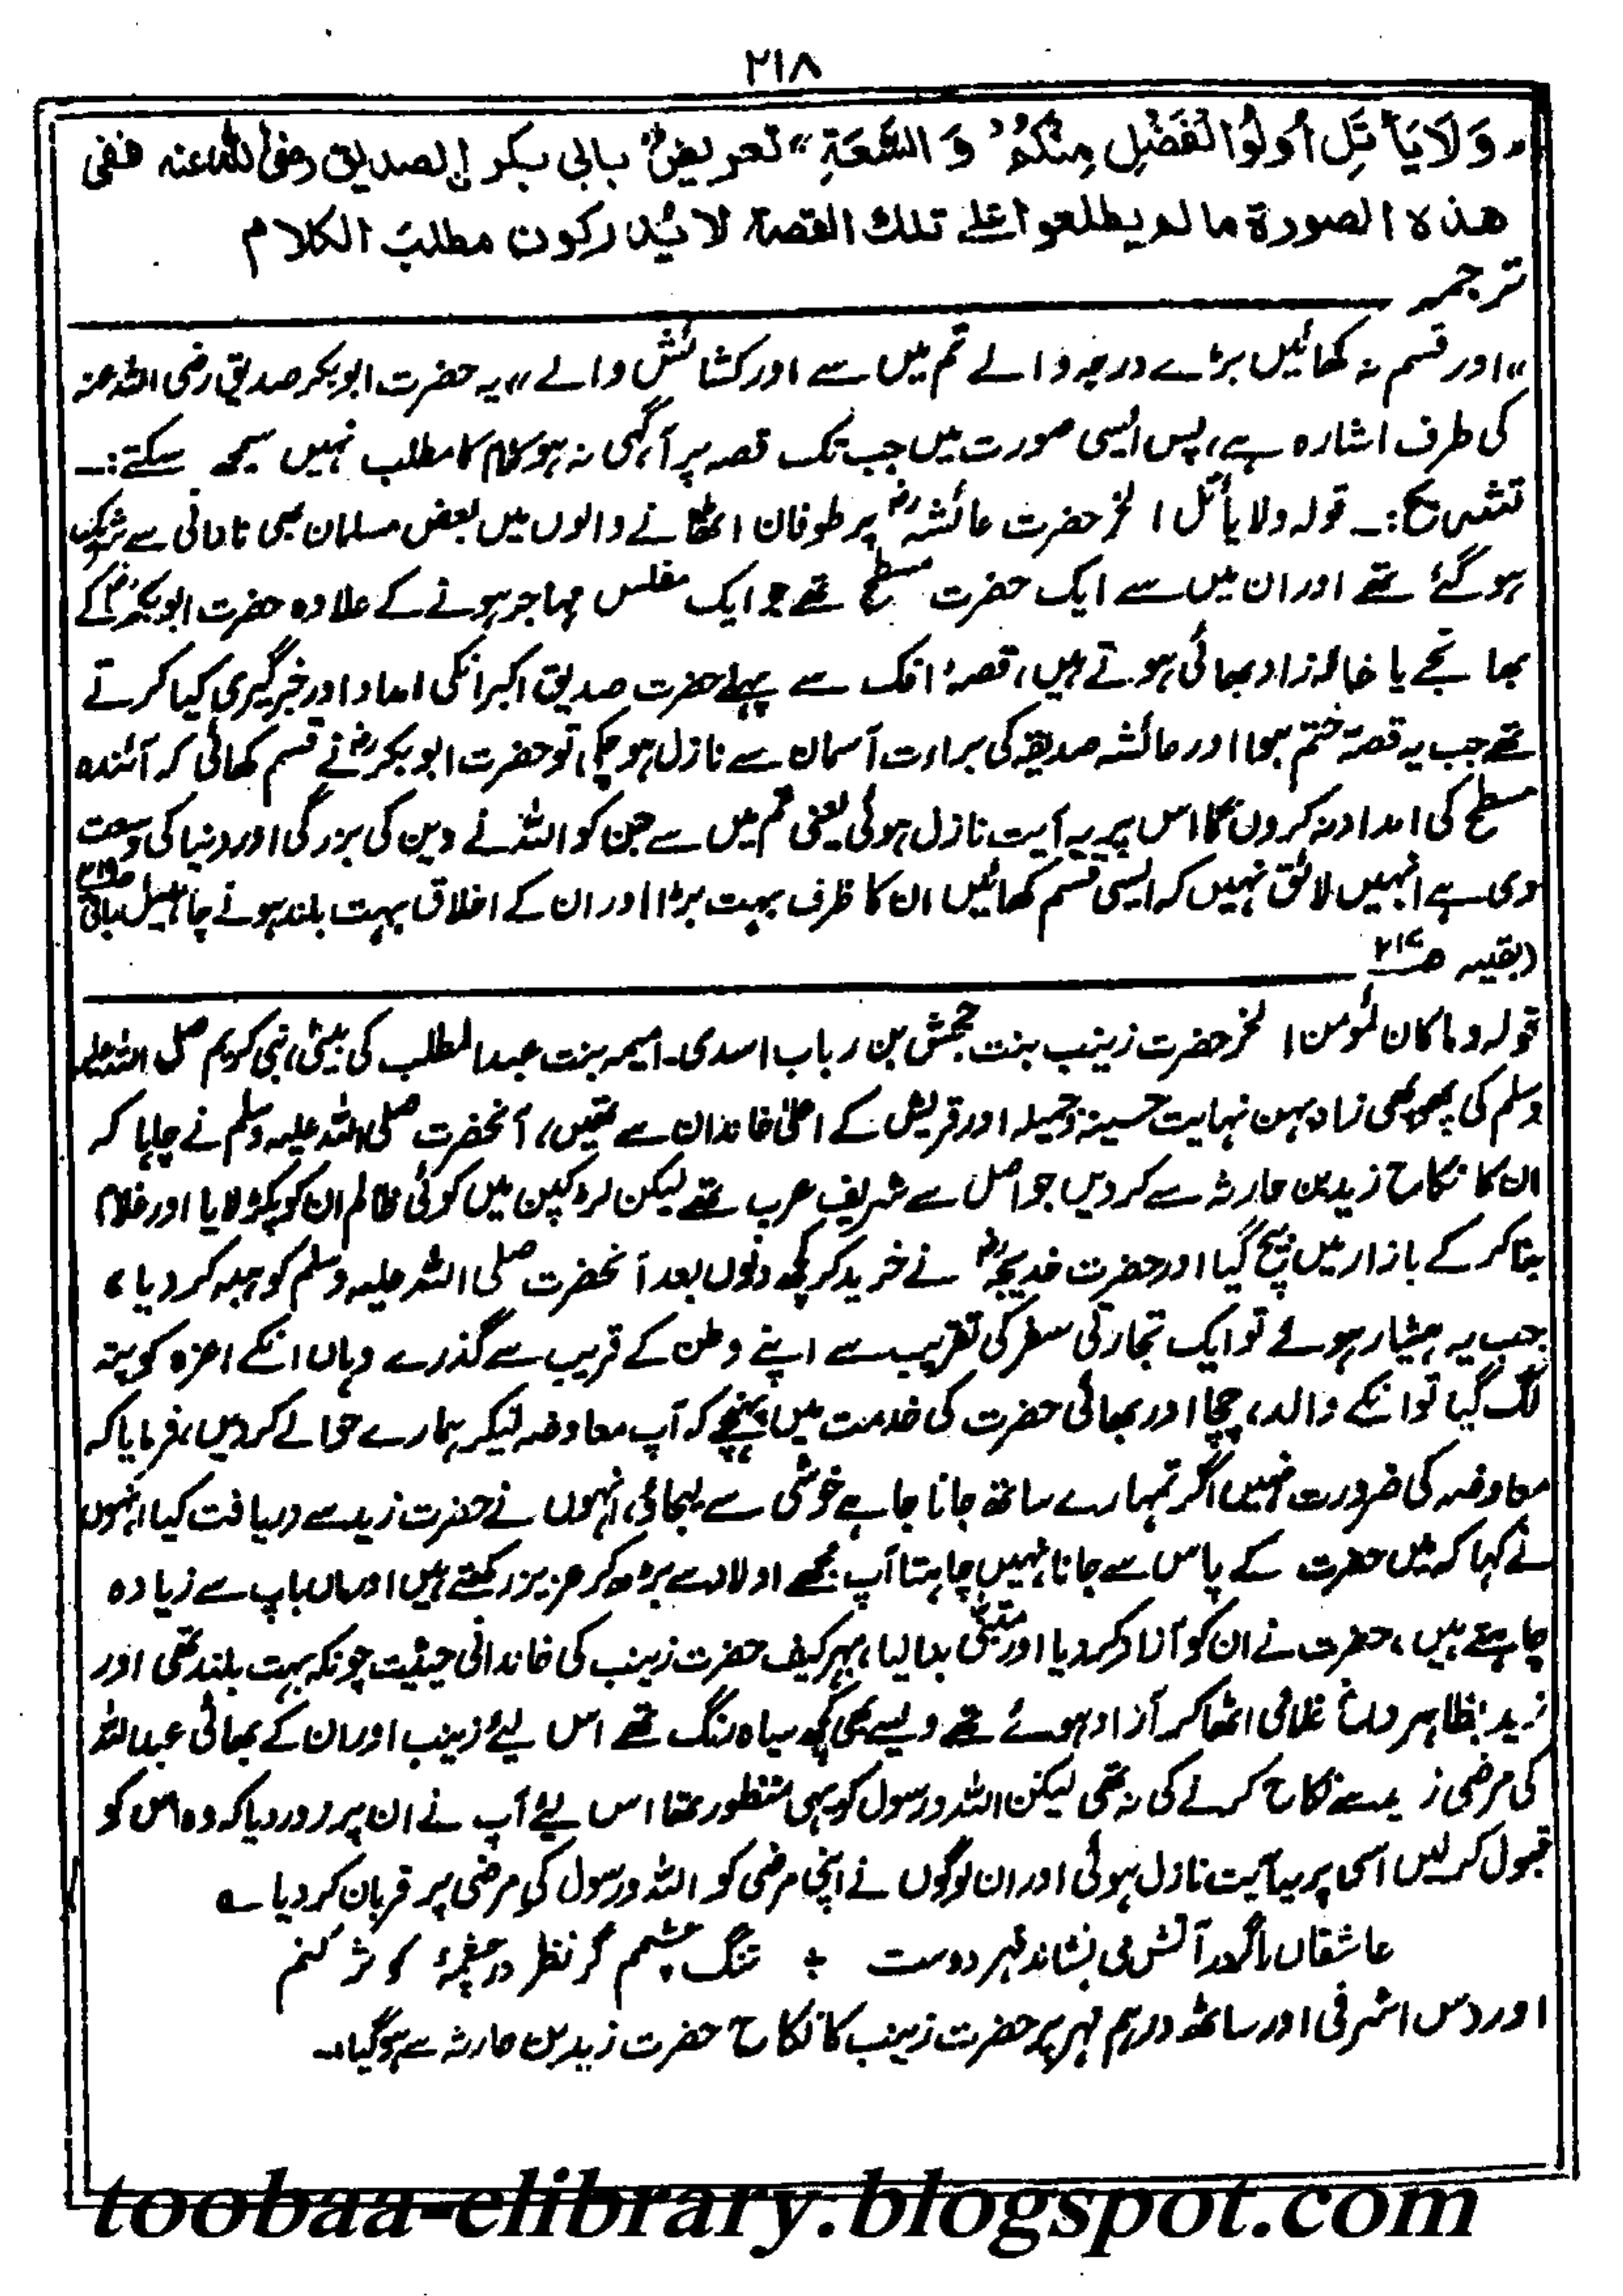 ۲۱۸
"وَلَا يَأْتَلِ أُولُوا الْفَضْلِ مِنْكُمْ وَالسَّعَةِ" تعريضٌ بابی بکر ن الصدیق رضی اللہ عنہ ففی
هذه الصورة ما لم يطلعوا علٰے تلك القصة لا يُدركون مطلبَ الكلام
ترجمہ
"اور قسم نہ کھائیں بڑے درجہ والے تم میں سے اور کشائش والے" یہ حضرت ابوبکر صدیق رضی اللہ عنہ
کی طرف اشارہ ہے، پس ایسی صورت میں جب تک قصہ پر آگہی نہ ہو کلام کا مطلب نہیں سمجھ سکتے:۔
تشریح:۔ قولہ ولا یأتل الخ حضرت عائشہؓ پر طوفان اٹھانے والوں میں بعض مسلمان بھی نادانی سے شریک
ہوگئے تھے اور ان میں سے ایک حضرت مسطح تھے جو ایک مفلس مہاجر ہونے کے علاوہ حضرت ابوبکرؓ کے
بھانجے یا خالہ زاد بھائی ہوتے ہیں، قصۂ افک سے پہلے حضرت صدیق اکبر انکی امداد اور خبرگیری کیا کرتے
تھے جب یہ قصہ ختم ہوا اور عائشہ صدیقہ کی براءت آسمان سے نازل ہوچکی تو حضرت ابوبکرؓ نے قسم کھائی کہ آئندہ
مسطح کی امداد نہ کروں گا اس پر یہ آیت نازل ہوئی یعنی تم میں سے جن کو اللہ نے دین کی بزرگی اور دنیا کی وسعت
دی ہے انہیں لائق نہیں کہ ایسی قسم کھائیں ان کا ظرف بہت بڑا اور ان کے اخلاق بہت بلند ہونے چاہئیں باقی ص۲۱۹
(بقیہ ص۲۱۷
قولہ وما کان لمؤمن الخ حضرت زینب بنت جحش بن رباب اسدی۔ امیمہ بنت عبد المطلب کی بیٹی، نبی کریم صلی اللہ علیہ
وسلم کی پھوپھی زاد بہن نہایت حسینہ وجمیلہ اور قریش کے اعلیٰ خاندان سے تھیں، آنحضرت صلی اللہ علیہ وسلم نے چاہا کہ
ان کا نکاح زید بن حارثہ سے کردیں جو اصل سے شریف عرب تھے لیکن لڑکپن میں کوئی ظالم ان کو پکڑ لایا اور غلام
بنا کر کے بازار میں بیچ گیا اور حضرت خدیجہؓ نے خرید کر کچھ دنوں بعد آنحضرت صلی اللہ علیہ وسلم کو ہبہ کردیا،
جب یہ ہشیار ہوئے تو ایک تجارتی سفر کی تقریب سے اپنے وطن کے قریب سے گذرے وہاں انکے اعزہ کو پتہ
لگ گیا تو انکے والد، چچا اور بھائی حضرت کی خدمت میں پہنچے کہ آپ معاوضہ لیکر ہمارے حوالے کردیں، فرمایا کہ
معاوضہ کی ضرورت نہیں اگر تمہارے ساتھ جانا چاہے خوشی سے لیجاؤ، انہوں نے حضرت زید سے دریافت کیا، انہوں
نے کہا کہ میں حضرت کے پاس سے جانا نہیں چاہتا آپ مجھے اولاد سے بڑھ کر عزیز رکھتے ہیں اور ماں باپ سے زیادہ
چاہتے ہیں، حضرت نے ان کو آزاد کردیا اور متبنّٰی بنا لیا، بہرکیف حضرت زینب کی خاندانی حیثیت چونکہ بہت بلند تھی اور
زید بظاہر داغ غلامی اٹھا کر آزاد ہوئے تھے ویسے بھی کچھ سیاہ رنگ تھے اس لیئے زینب اور ان کے بھائی عبد اللہ
کی مرضی زید سے نکاح کرنے کی نہ تھی لیکن اللہ ورسول کو یہی منظور تھا اس لیئے آپ نے ان پر زور دیا کہ وہ اس کو
قبول کرلیں اسی پر یہ آیت نازل ہوئی اور ان لوگوں نے اپنی مرضی کو اللہ ورسول کی مرضی پر قربان کردیا ؎
عاشقاں را گر در آتش می نشاند قہر دوست ÷ تنگ چشم گر نظر در چشمۂ کوثر کنم
اور دس اشرفی اور ساٹھ درہم مہر پر حضرت زینب کا نکاح حضرت زید بن حارثہ سے ہوگیا۔۔
toobaa-elibrary.blogspot.com